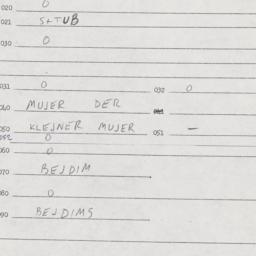 020 0
021 S+TUB
030 0
031 0 032 0
040 MUJER DER
050 KLEJNER MUJER 051 –
052 0
060 0
070 BEJDIM
080 0
090 BEJDIMS